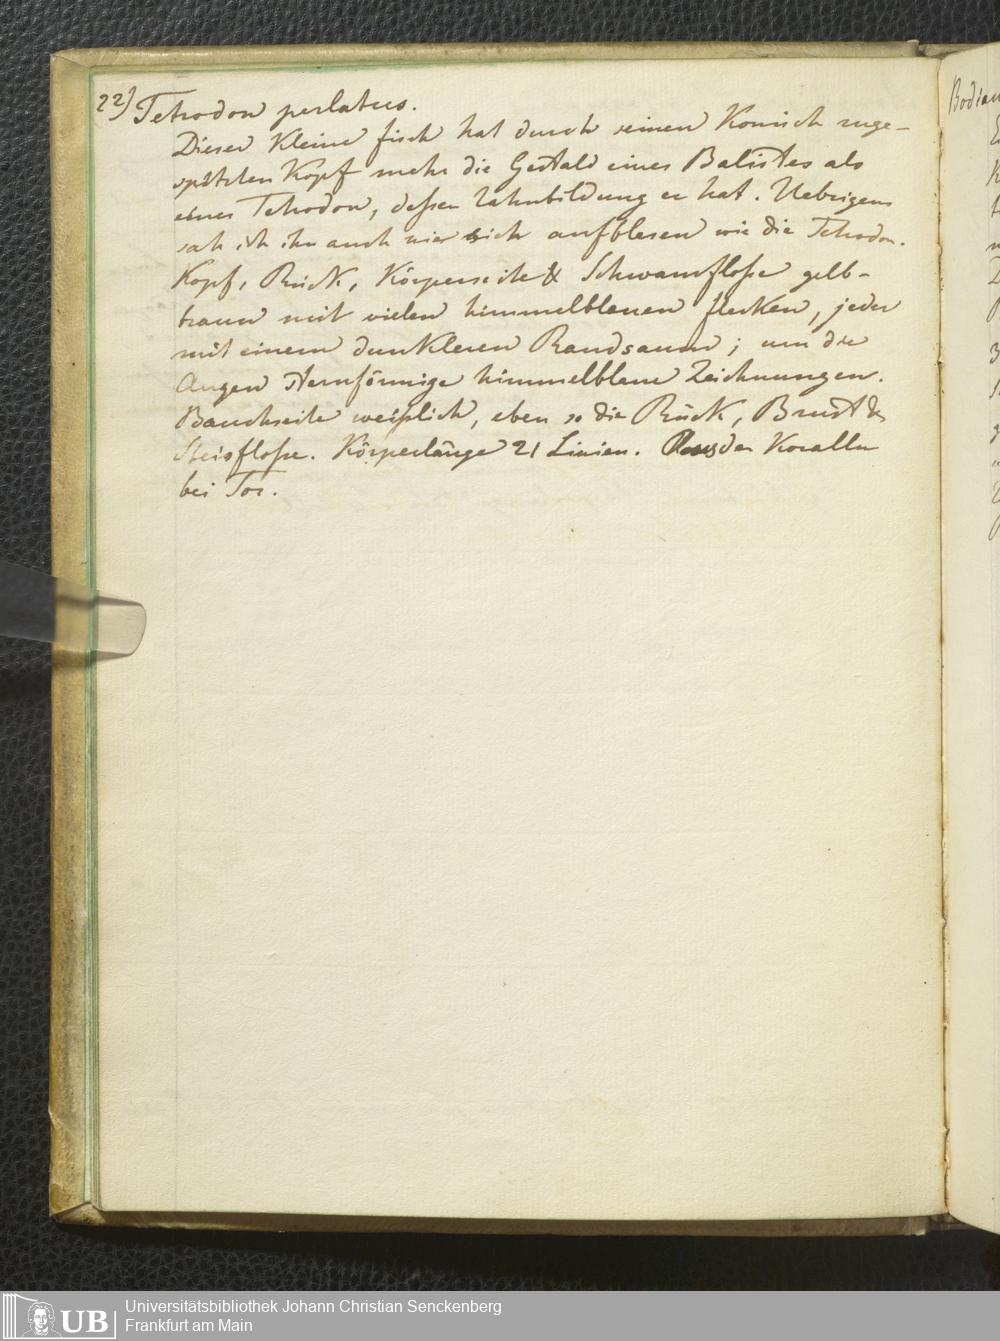 22) Tetrodon perlatus.
Dieser kleine fisch hat durch seinen Konisch zuge-
spitzten Kopf mehr die Gestald eines Balistes als
eines Tetrodon, dessen Zahnbildung er hat. Uebrigens
sah ich ihn auch nie sich aufblesen wie die Tetrodon.
Kopf, Rück, Körperseite & Schwanzflosse gelb-
braun mit vielen himmelblauen flecken, jeder
mit einem dunkleren Randsaum; um die
Augen sternförmige himmelblaue Zeichnungen.
Bauchseite weißlich, eben so die Rück, Brust &
Steisflosse. Körperlänge 21 Linien. der Korallen
bei Tor.
Bodian
Universitätsbibliothek Johann Christian Senckenberg
Frankfurt am Main
UB